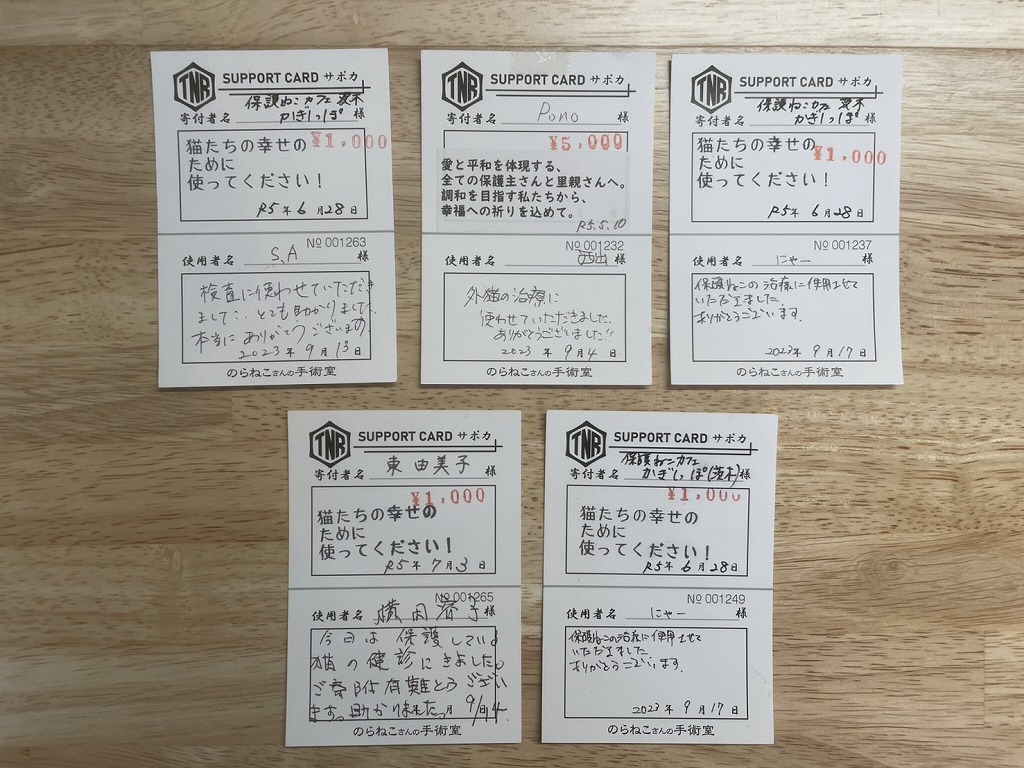 TNR SUPPORT CARD サポカ
保護ねこカフェ 茨木
寄付者名 かぎしっぽ 様
¥1,000
猫たちの幸せの
ために
使ってください！
R5年 6月28日
№ 001263
使用者名 S.A 様
検査に使わせていただき
ました。とても助かりました
本当にありがとうございます
2023年 9月 13日
のらねこさんの手術室
TNR SUPPORT CARD サポカ
寄付者名 Pono 様
¥5,000
愛と平和を体現する、
全ての保護主さんと里親さんへ。
調和を目指す私たちから、
幸福への祈りを込めて。
R5.5.10
№ 001232
使用者名 西出 様
外猫の治療に
使わせていただきました。
ありがとうございました!!
2023年 9月 4日
のらねこさんの手術室
TNR SUPPORT CARD サポカ
保護ねこカフェ 茨木
寄付者名 かぎしっぽ 様
¥1,000
猫たちの幸せの
ために
使ってください！
R5年 6月28日
№ 001237
使用者名 にゃー 様
保護ねこの治療に使用させて
いただきました
ありがとうございます.
2023年 9月 17日
のらねこさんの手術室
TNR SUPPORT CARD サポカ
寄付者名 東 由美子 様
¥1,000
猫たちの幸せの
ために
使ってください！
R5年 7月3日
№ 001265
使用者名 横田 子 様
今日は 保護している
猫の健診にきました。
ご寄付有難とうござい
ます。助かりました 9/14
のらねこさんの手術室
TNR SUPPORT CARD サポカ
保護ねこカフェ
寄付者名 かぎしっぽ(茨木) 様
¥1,000
猫たちの幸せの
ために
使ってください！
R5年 6月28日
№ 001249
使用者名 にゃー 様
保護ねこの治療に使用させて
いただきました
ありがとうございます.
2023年 9月 17日
のらねこさんの手術室